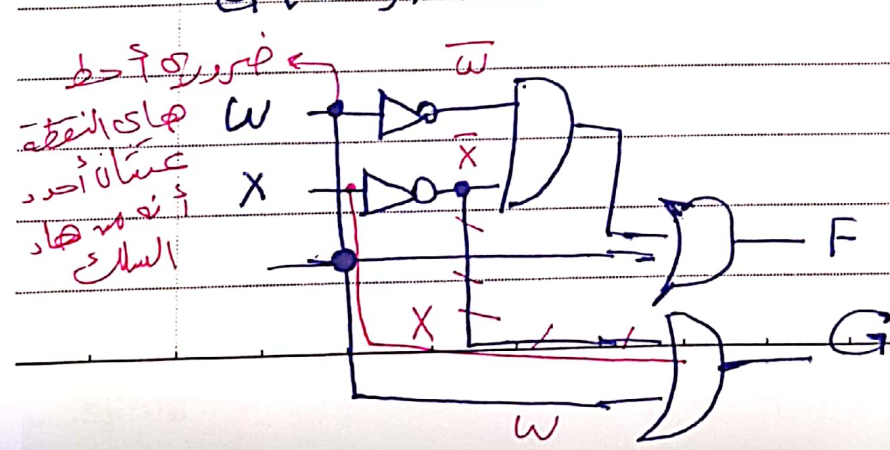 ضروري أحط
هاي النقطة
عشان أحدد
أنه من هاد
السلك
W
X
W̅
X̅
F
X
G
W